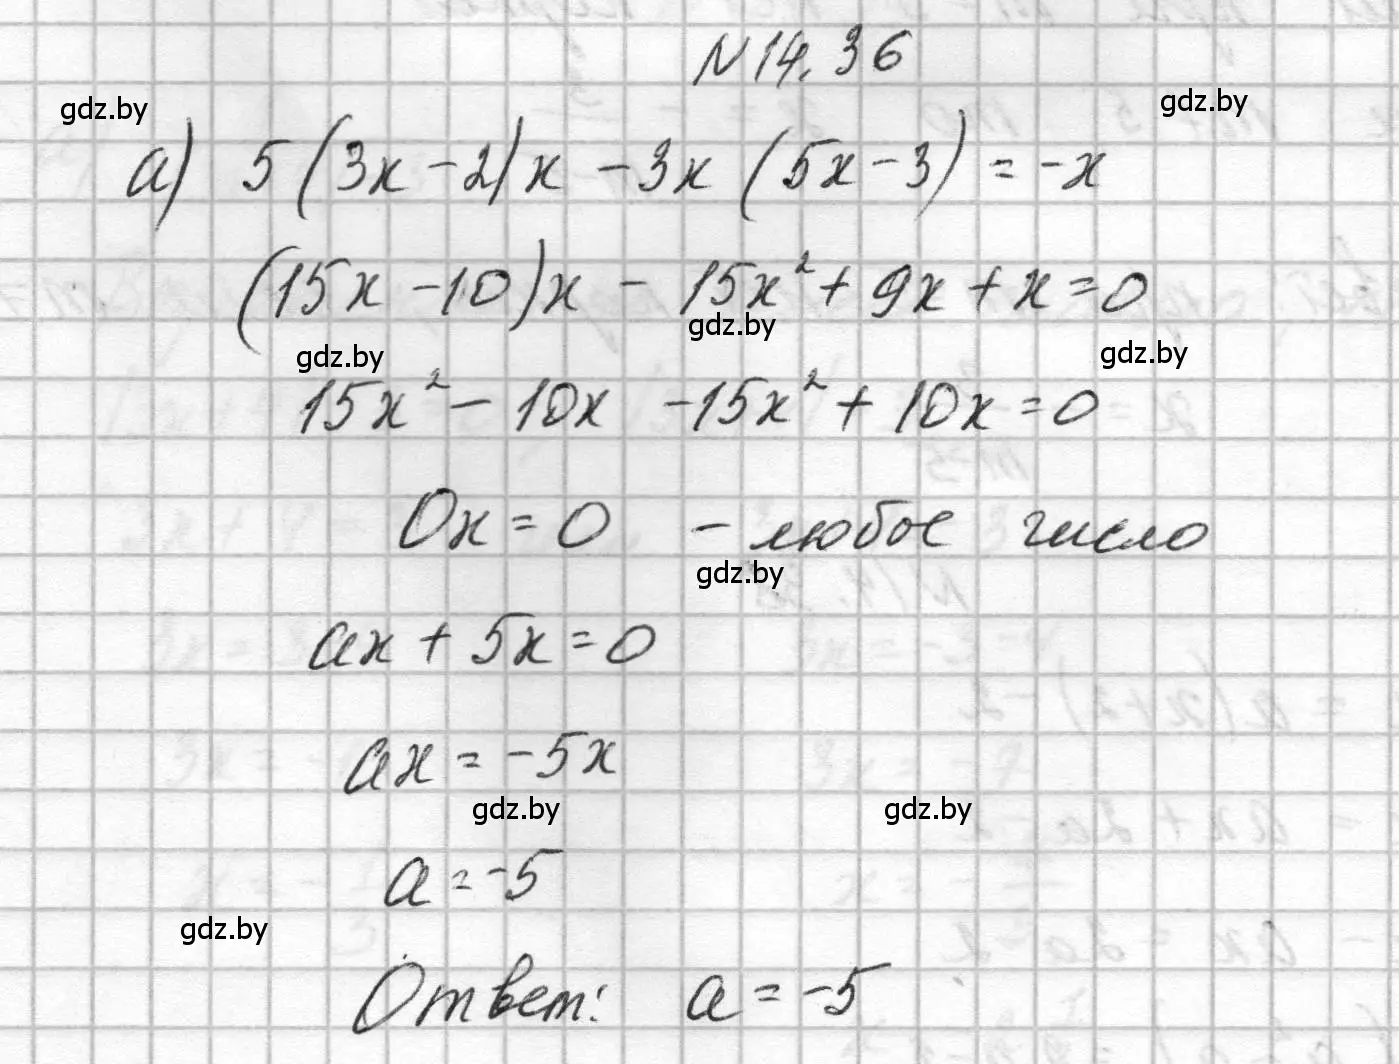 N 14.36
gdz.by
gdz.by
а) 5(3x-2)x - 3x(5x-3) = -x
(15x-10)x - 15x² + 9x + x = 0
gdz.by
gdz.by
gdz.by
15x² - 10x - 15x² + 10x = 0
0x = 0 - любое число
gdz.by
ax + 5x = 0
ax = -5x
gdz.by
gdz.by
a = -5
gdz.by
Ответ: a = -5